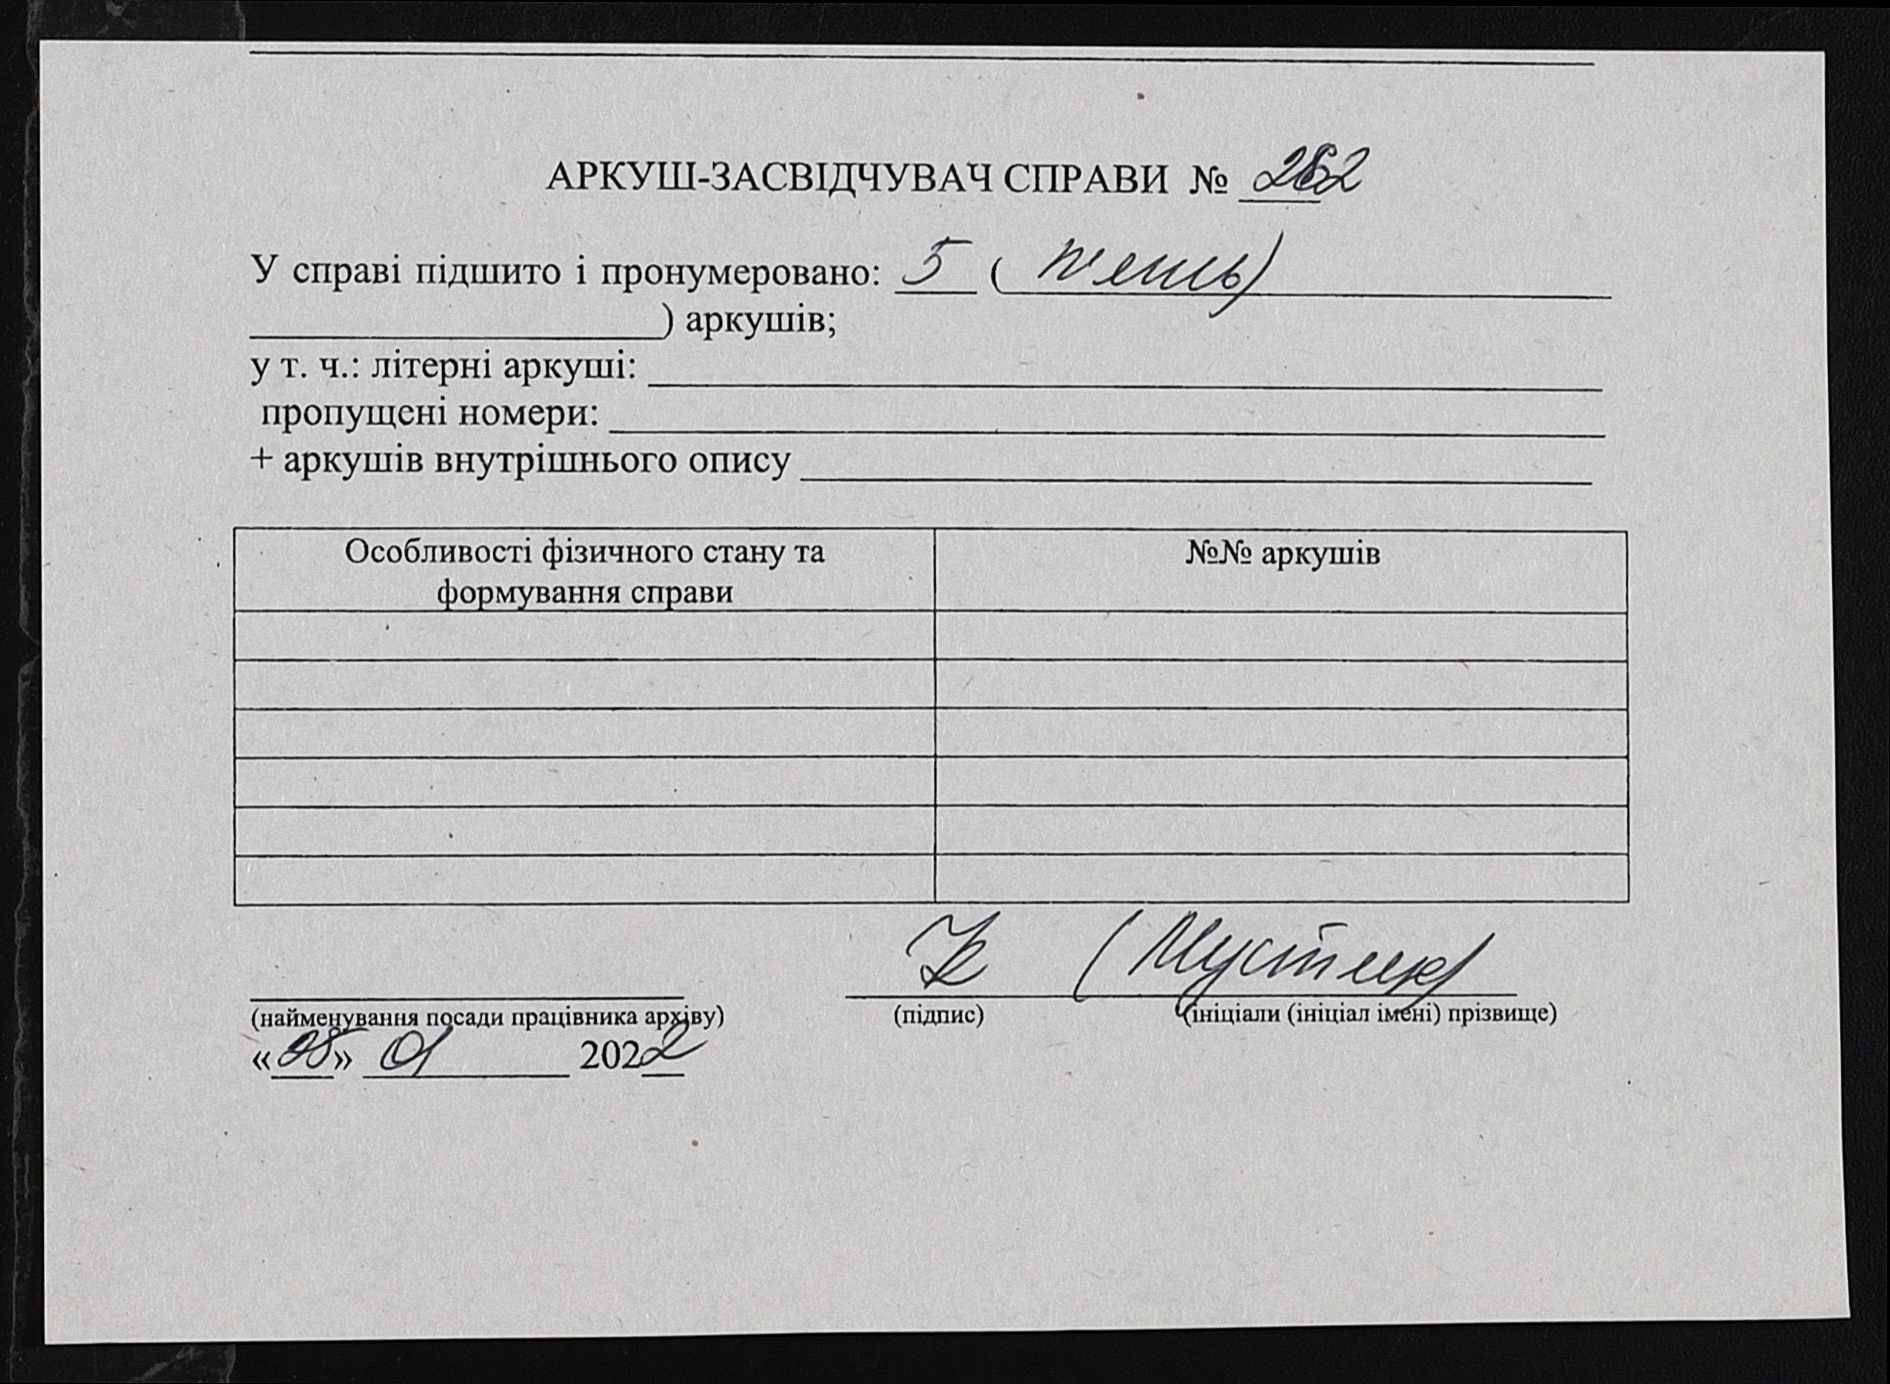 АРКУШ-ЗАСВІДЧУВАЧ СПРАВИ №
У справі підшито і пронумеровано: 5 (п'ять)
) аркушів;
у т. ч.: літерні аркуші:
пропущені номери:
+ аркушів внутрішнього опису
Особливості фізичного стану та
формування справи
№№ аркушів
(найменування посади працівника архіву)
(підпис)
(ініціали (ініціал імені) прізвище)
«08» 01 2022